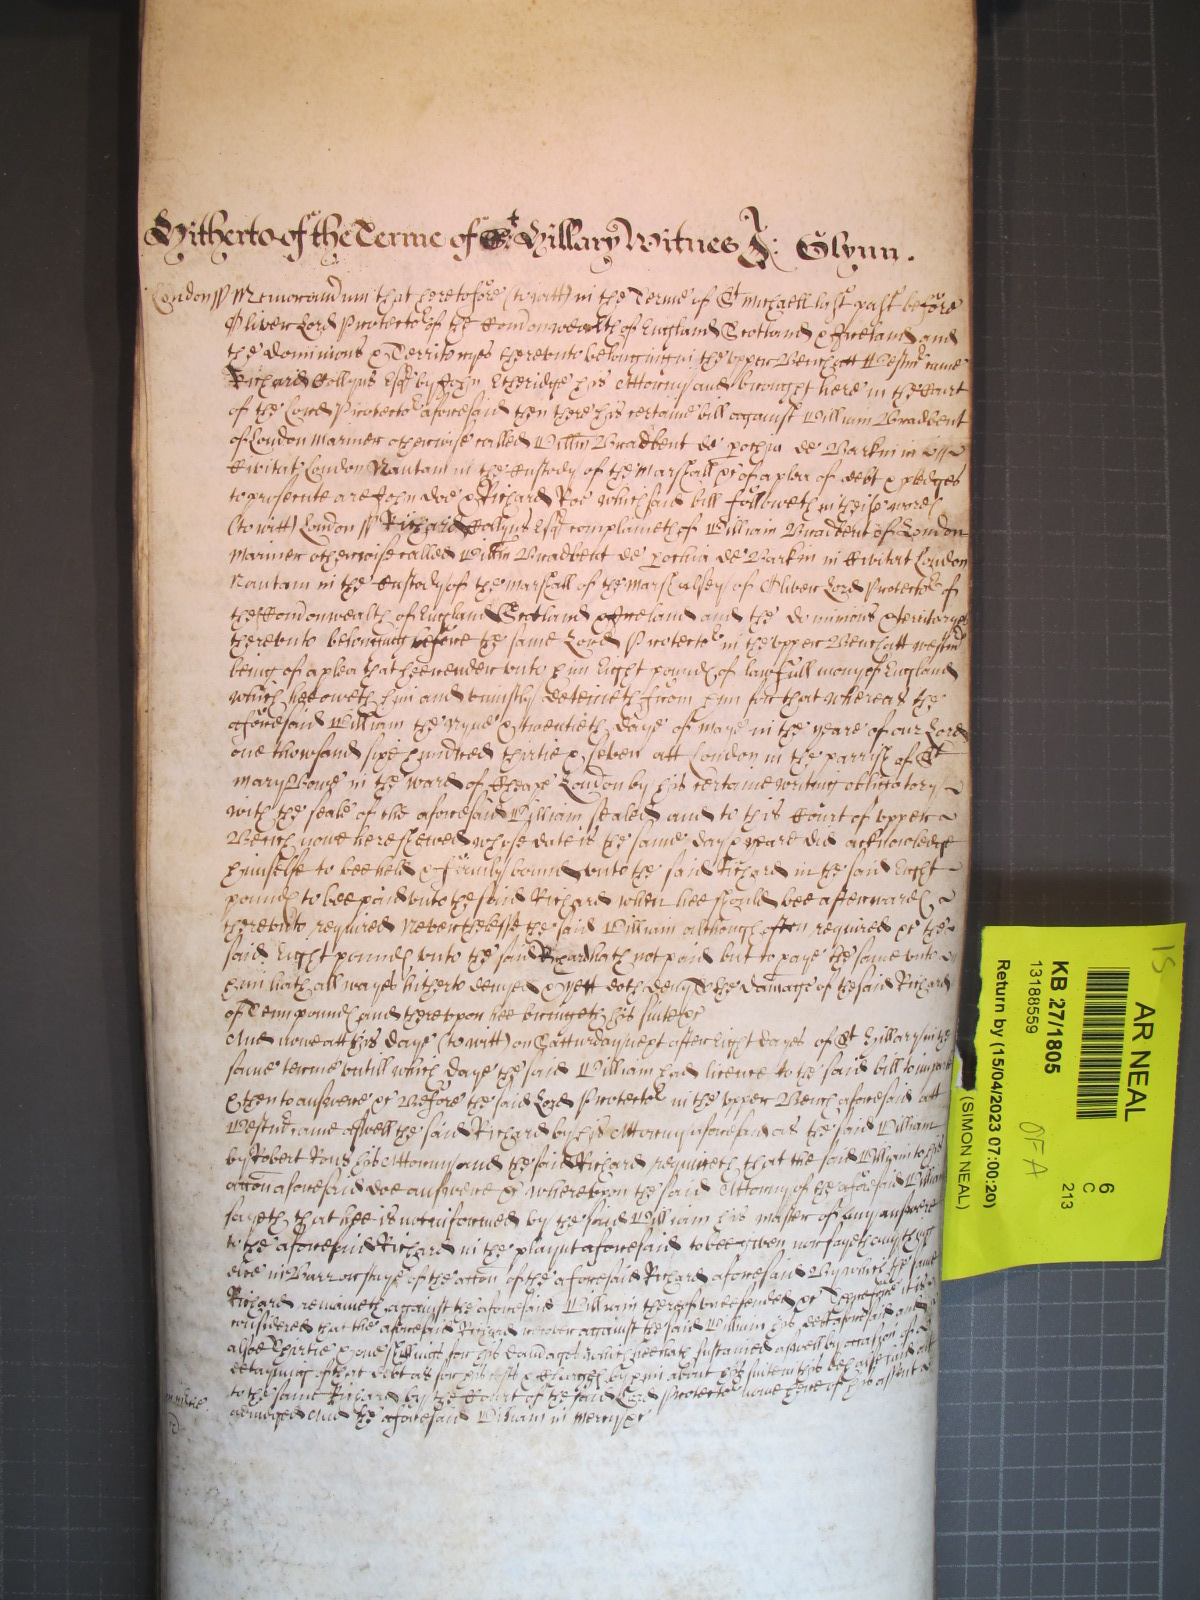 Hitherto of the Terme of St Hillary Witnes J: Glynn.
London ss Memorandum that heretofore (to witt) in the Terme of St Michaell last past before
Oliver Lord Protector of the Comonwealth of England Scotland & Ireland and
the dominions & Territoryes thereunto belonging in the upper Bench att Westmr came
Richard Collyns Esqr by John Etheridge his Attorny and brought here in the Court
of the Lord Protector aforesaid then there his certaine bill against William Bradbent
of London Mariner otherwise called Willm Bradbent de pochia de Barkin in
Civitat London Nautam in the Custody of the Marshall &c of a plea of debt & pledges
to prosecute are John Doe & Richard Roe which said bill followeth in theise words
(to witt) London ss Richard Collyns Esqr complaineth of William Bradbent of London
Mariner otherwise called Willm Bradbent de pochia de Barkin in Civitat London
Nautam in the Custody of the Marshall of the Marshalsey of Oliver Lord Protector of
the Comonwealth of England Scotland & Ireland and the dominions & territoryes
thereunto belonging before the same Lord Protector in the upper Bench att Westmr
being of a plea that hee render unto him Eight pounds of lawfull mony of England
which hee oweth him and uniustly deteineth from him for that whereas the
aforesaid William the Nyne & twentieth daye of Maye in the yeare of our Lord
one thowsand sixe hundred thirtie & seven att London in the parrish of St
Mary Bowe in the ward of Cheape London by his certaine writing obligatory
with the seale of the aforesaid William sealed and to this Court of upper
Bench nowe here shewed whose date is the same day & yeare did acknowledge
himselfe to bee held & firmly bound unto the said Richard in the said Eight
pounds to bee paid unto the said Richard when hee should bee afterwards
thereunto required Neverthelesse the said William although often required &c the
said Eight pounds unto the said Richard hath not paid but to paye the same unto
him hath all wayes hitherto denyed & yett doth deny To the damage of the said Richard
of Tenn pounds and thereupon hee bringeth his suite &c
And nowe att this daye (to witt) on Satturday next after Eight dayes of St Hillary in the
same terme untill which daye the said William had licence to the said bill to imparle
& then to answere &c Before the said Lord Protector in the upper Bench aforesaid att
Westmr came aswell the said Richard by his Attorny aforesaid as the said William
by Robert Rous his Attorny and the said Richard requireth that the said William to his
accon aforesaid doe answere &c Whereupon the said Attorny of the aforesaid William
sayeth that hee is not informed by the said William his master of any answere
to the aforesaid Richard in the playnt aforesaid to bee given nor sayeth any thing
else in Barr or staye of the accon of the aforesaid Richard aforesaid By which the same
Richard remaineth against the aforesaid William thereof undefended &c Therefore it is
considered that the aforesaid Richard recover against the said William his debt aforesaid and
alsoe Thirtie & one shillings for his damages which hee hath sustained aswell by occasion of
detayning of that debt as for his costs & charges by him about his suite in this behalfe laid out
to the same Richard by the Court of the said Lord Protector nowe here of his assent
adiudged And the aforesaid William in Mercy &c
AR NEAL
6
C
213
KB 27/1805
13188559
Return by (15/04/2023 07:00:20)
(SIMON NEAL)
15
OFA